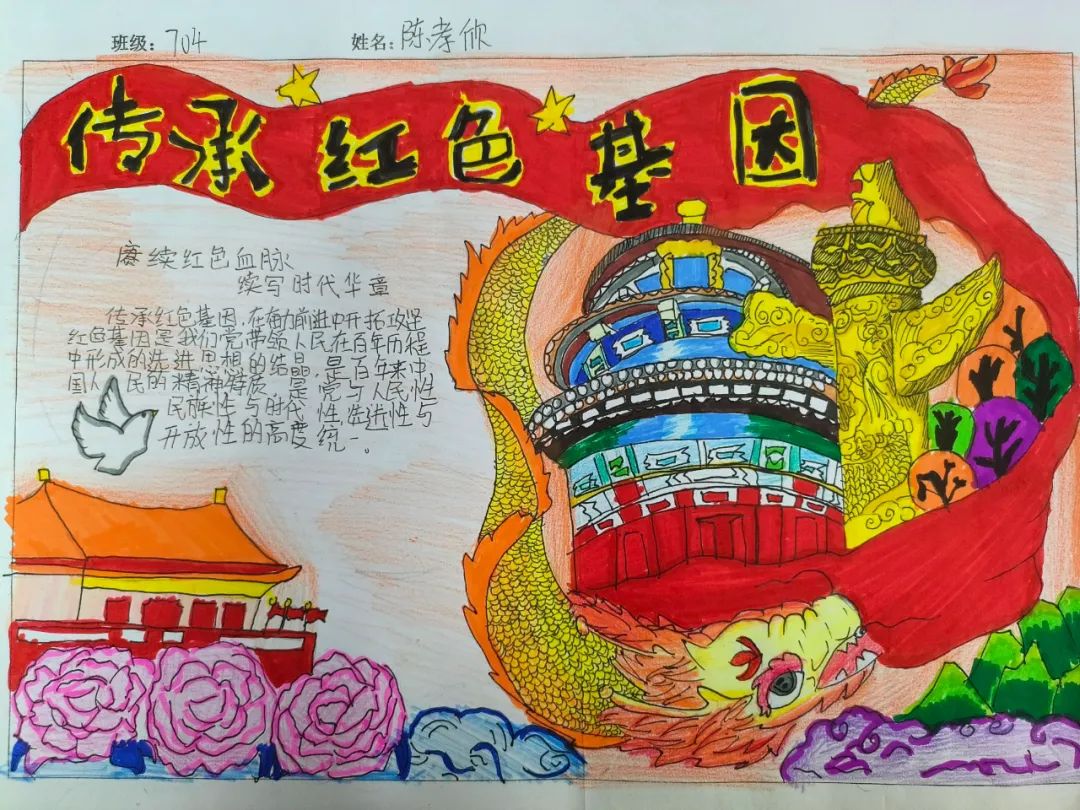 班级：704 姓名：陈孝欣
传承红色基因
赓续红色血脉
续写时代华章
传承红色基因，在奋力前进中开拓攻坚
红色基因是我们党带领人民在百年历程
中形成的先进思想的结晶，是百年来中
国人民的精神特质，是党与人民性
民族性与时代性，先进性与
开放性的高度统一。